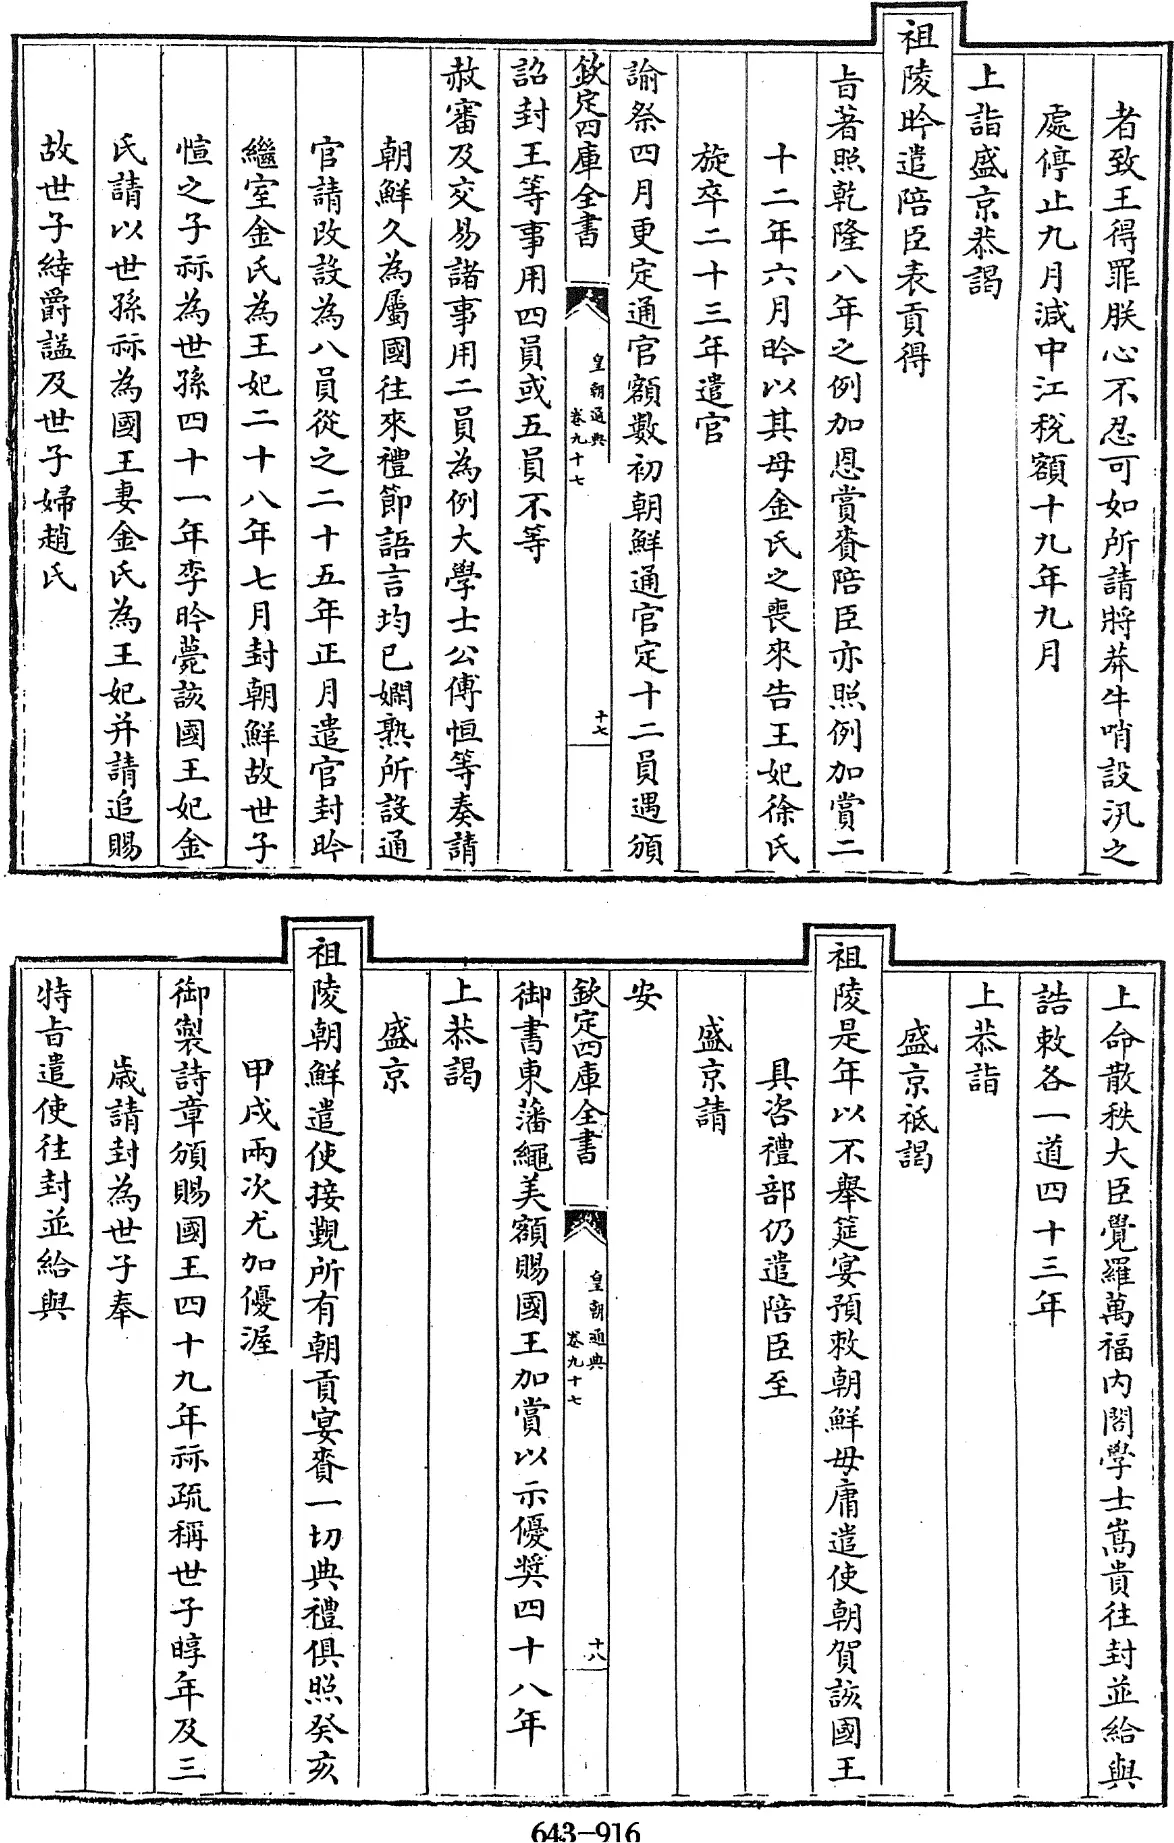 者致王得罪朕心不忍可如所請將莽牛哨設汛之
處停止九月減中江稅額十九年九月
上詣盛京恭謁
祖陵昑遣陪臣表貢得
旨著照乾隆八年之例加恩賞賚陪臣亦照例加賞二
十二年六月昑以其母金氏之喪來告王妃徐氏
旋卒二十三年遣官
諭祭四月更定通官額數初朝鮮通官定十二員遇頒
欽定四庫全書
皇朝通典
卷九十七
十七
詔封王等事用四員或五員不等
赦審及交易諸事用二員為例大學士公傅恒等奏請
朝鮮久為屬國往來禮節語言均已嫻熟所設通
官請改設為八員從之二十五年正月遣官封昑
繼室金氏為王妃二十八年七月封朝鮮故世子
愃之子祘為世孫四十一年李昑薨該國王妃金
氏請以世孫祘為國王妻金氏為王妃并請追賜
故世子緈爵諡及世子婦趙氏
上命散秩大臣覺羅萬福內閣學士嵩貴往封並給與
誥敕各一道四十三年
上恭詣
盛京祗謁
祖陵是年以不舉筵宴預敕朝鮮毋庸遣使朝賀該國王
具咨禮部仍遣陪臣至
盛京請
安
欽定四庫全書
皇朝通典
卷九十七
十八
御書東藩繩美額賜國王加賞以示優獎四十八年
上恭謁
盛京
祖陵朝鮮遣使接觐所有朝貢宴賚一切典禮俱照癸亥
甲戌兩次尤加優渥
御製詩章頒賜國王四十九年祘疏稱世子㬀年及三
歲請封為世子奉
特旨遣使往封並給與
643-916